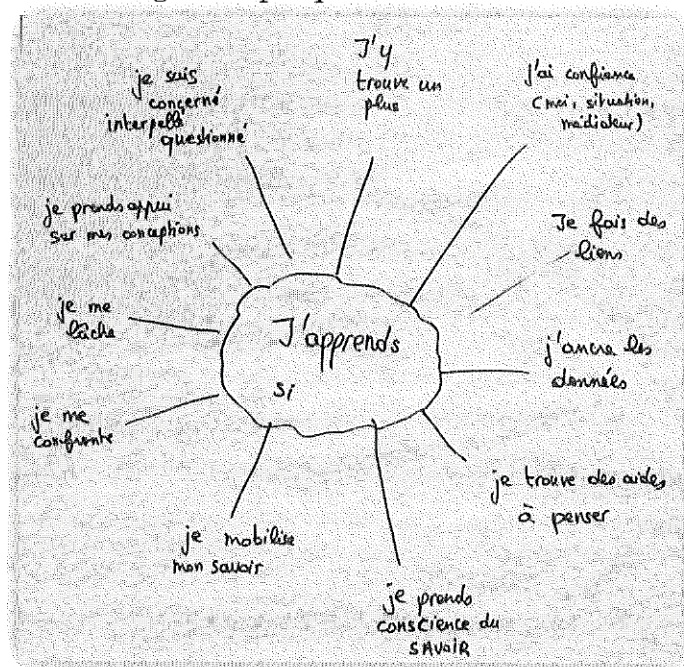 J'apprends
si
J'y
trouve un
plus
j'ai confiance
(moi, situation,
médiateur)
Je fais des
liens
j'ancre les
données
je trouve des aides
à penser
je prends
conscience du
SAVOIR
je mobilise
mon savoir
je me
confronte
je me
lâche
je prends appui
sur mes conceptions
je suis
concerné
interpellé
questionné